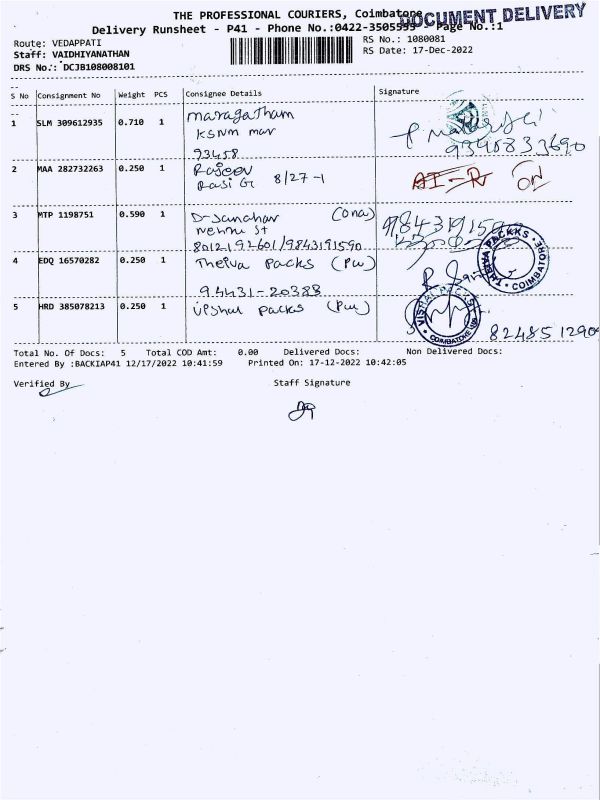 THE PROFESSIONAL COURIERS, Coimbatore
DOCUMENT DELIVERY
Delivery Runsheet - P41 - Phone No.:0422-3505555 Page No.:1
Route: VEDAPPATI
RS No.: 1080081
Staff: VAIDHIYANATHAN
RS Date: 17-Dec-2022
DRS No.: DCJB108008101
S No Consignment No Weight PCS Consignee Details Signature
1 SLM 309612935 0.710 1 maragatham
KSNM
93458
9340833690
2 MAA 282732263 0.250 1 Rajeev
Rasi G 8/27-1
3 MTP 1198751 0.590 1 D-Janahar (Ona)
Nehru St
8012192601/9843191590
9843191590
4 EDQ 16570282 0.250 1 Theiva Packs (Pw)
94431-20388
THEIVA PACKKS COIMBATORE
5 HRD 385078213 0.250 1 Vishal packs (Pw)
VISHAL PACKS COIMBATORE
8248512909
Total No. Of Docs: 5 Total COD Amt: 0.00 Delivered Docs: Non Delivered Docs:
Entered By :BACKIAP41 12/17/2022 10:41:59 Printed On: 17-12-2022 10:42:05
Verified By Staff Signature